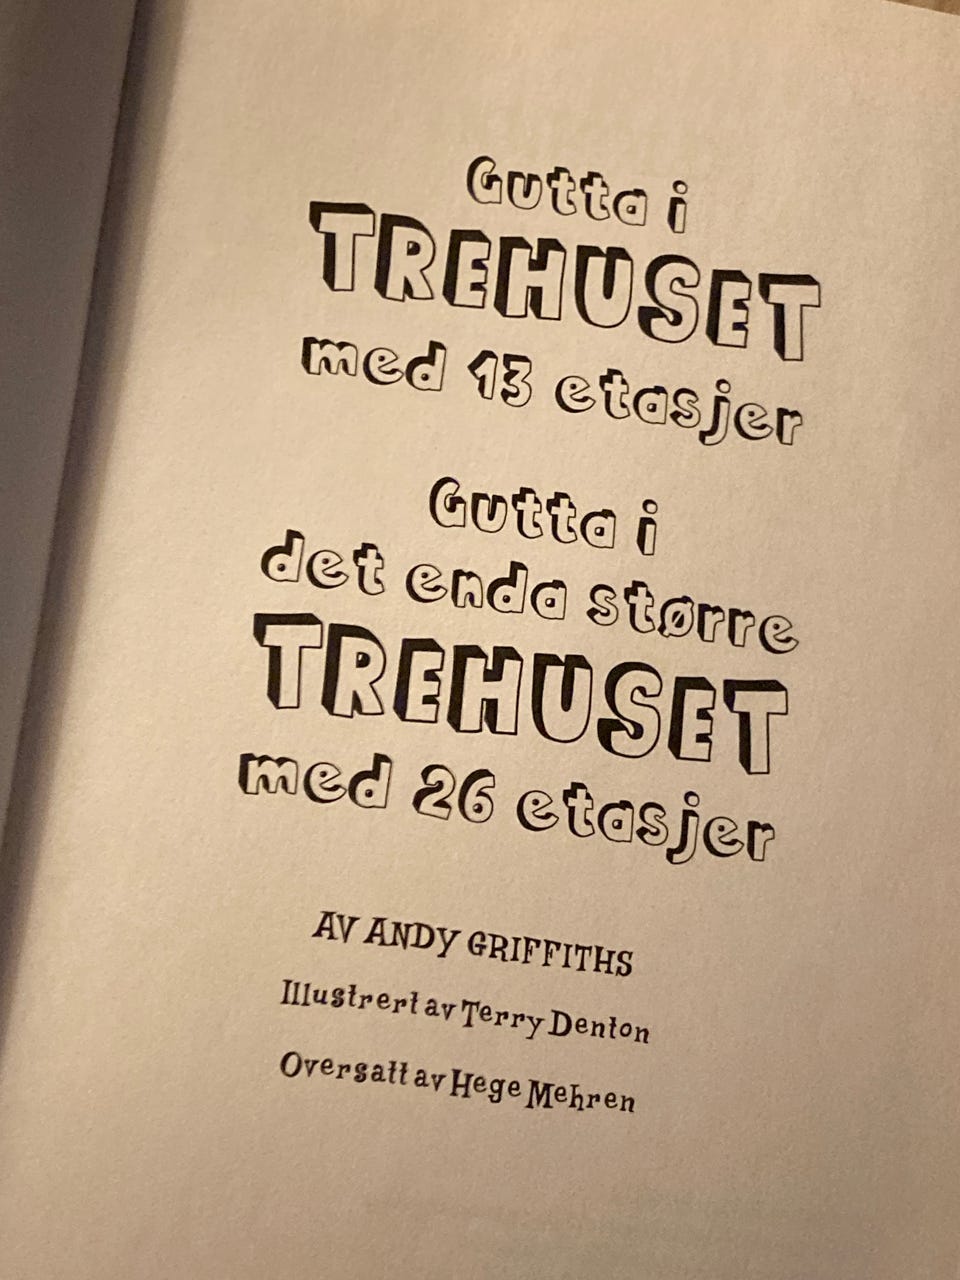 Gutta i
TREHUSET
med 13 etasjer
Gutta i
det enda større
TREHUSET
med 26 etasjer
AV ANDY GRIFFITHS
Illustrert av Terry Denton
Oversatt av Hege Mehren